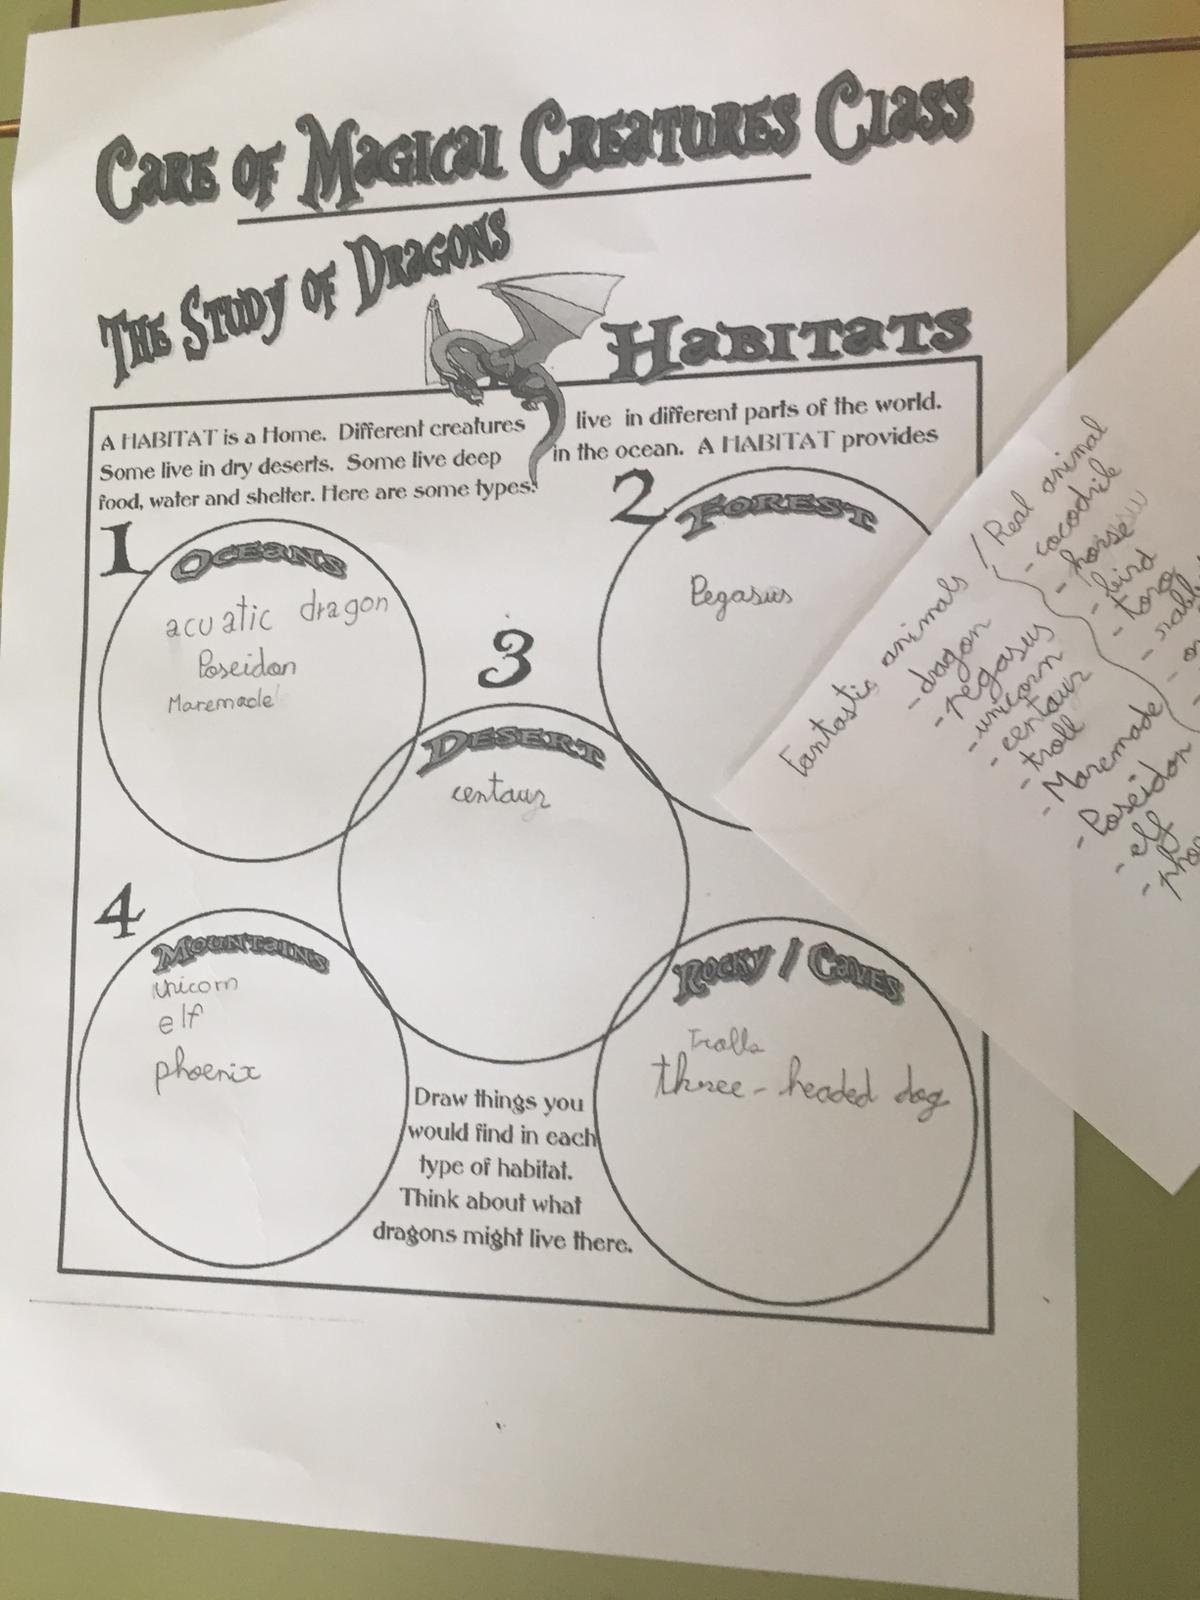 CARE OF MAGICAL CREATURES CLASS
THE STUDY OF DRAGONS
HABITATS
A HABITAT is a Home. Different creatures live in different parts of the world.
Some live in dry deserts. Some live deep in the ocean. A HABITAT provides
food, water and shelter. Here are some types:
1
OCEANS
acuatic dragon
Poseidon
Maremade
2
FOREST
Pegasus
3
DESERT
centaur
4
MOUNTAINS
unicorn
elf
phoenix
ROCKY / CAVES
Trolls
three-headed dog
Draw things you
would find in each
type of habitat.
Think about what
dragons might live there.
Fantastic animals / Real animal
- dragon
- pegasus
- unicorn
- centaur
- troll
- Maremade
- Poseidon
- elf
- cocodrile
- horse
- bird
- toro